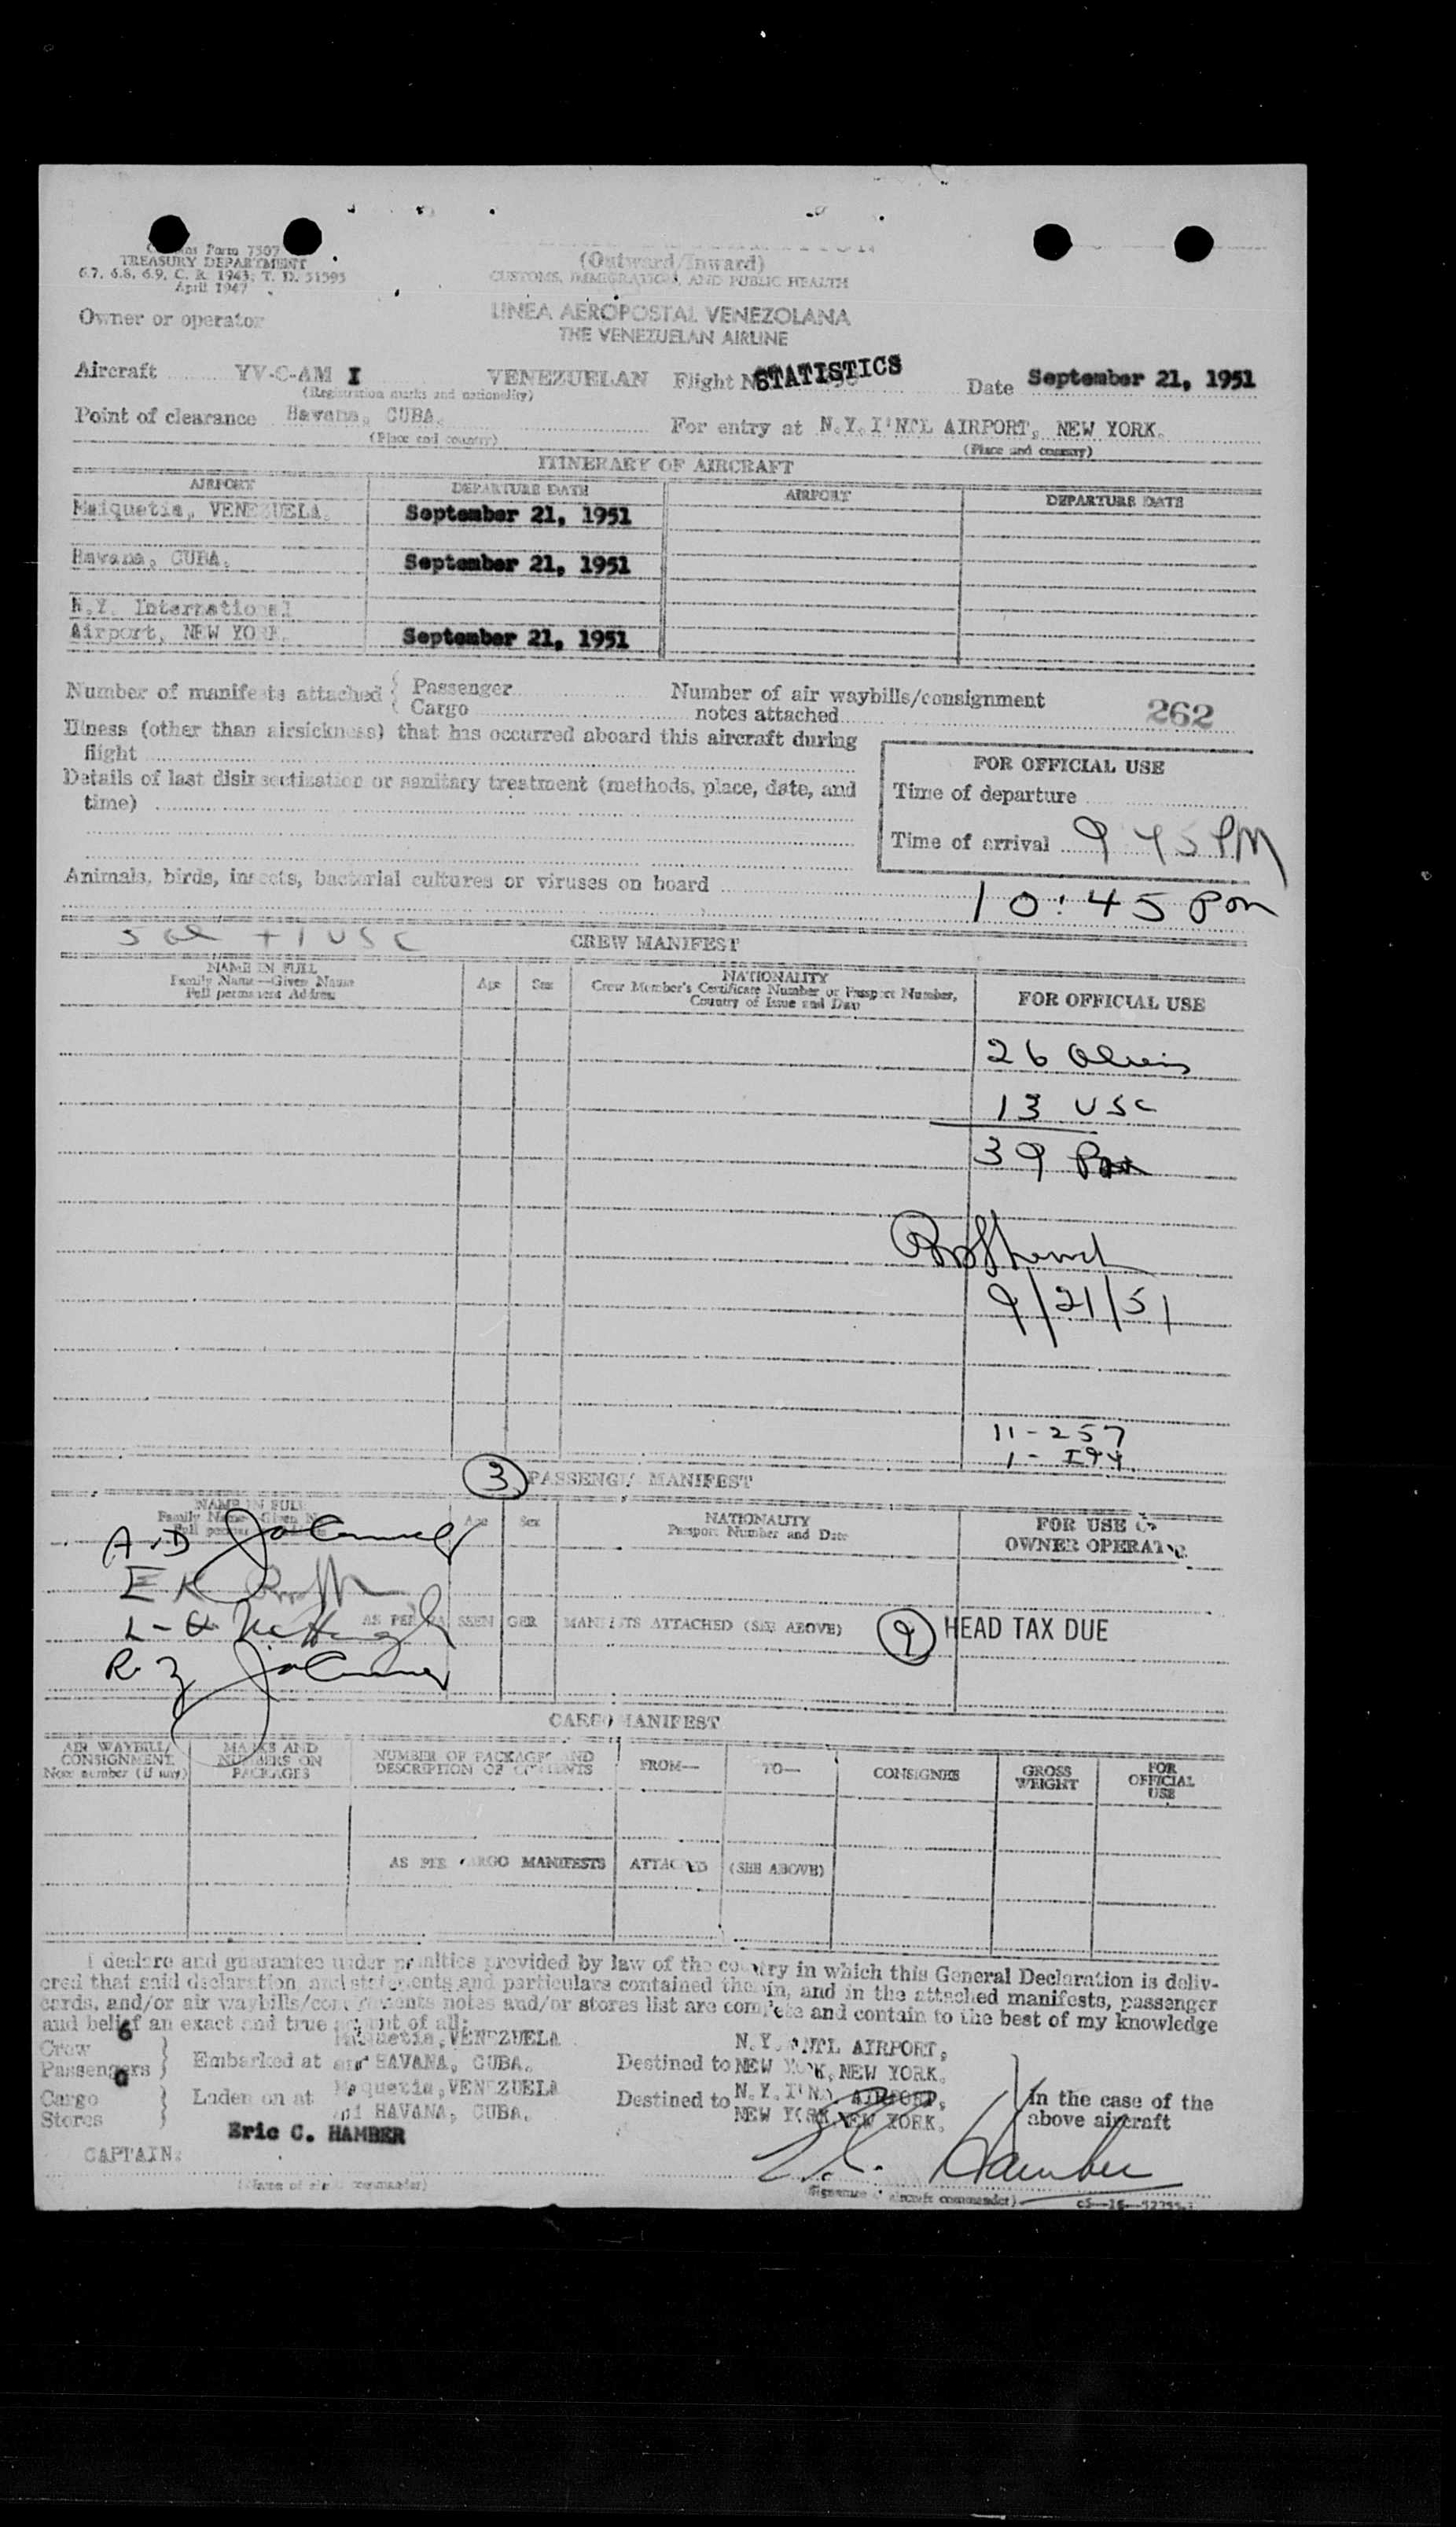 Customs Form 7507
TREASURY DEPARTMENT
6.7, 6.8, 6.9, C. R. 1943; T. D. 51595
April 1947
(Outward/Inward)
CUSTOMS, IMMIGRATION, AND PUBLIC HEALTH
Owner or operator
LINEA AEROPOSTAL VENEZOLANA
THE VENEZUELAN AIRLINE
Aircraft YV-C-AM I VENEZUELAN Flight STATISTICS Date September 21, 1951
(Registration marks and nationality)
Point of clearance Havana, CUBA. For entry at N.Y. I'NTL AIRPORT, NEW YORK.
(Place and country) (Place and country)
ITINERARY OF AIRCRAFT
AIRPORT DEPARTURE DATE AIRPORT DEPARTURE DATE
Maiquetia, VENEZUELA. September 21, 1951
Havana, CUBA. September 21, 1951
N.Y. International
Airport, NEW YORK. September 21, 1951
Number of manifests attached { Passenger Number of air waybills/consignment
Cargo notes attached 262
Illness (other than airsickness) that has occurred aboard this aircraft during
flight
FOR OFFICIAL USE
Details of last disinsectization or sanitary treatment (methods, place, date, and
time)
Time of departure
Time of arrival 9 45 PM
Animals, birds, insects, bacterial cultures or viruses on board
10:45 pm
+ 1 USC
CREW MANIFEST
NAME IN FULL
Family Name—Given Name
Full permanent Address
Age Sex
NATIONALITY
Crew Member's Certificate Number or Passport Number,
Country of Issue and Date
FOR OFFICIAL USE
26 Aliens
13 USC
39
9/21/51
11-257
(3) PASSENGER MANIFEST
NAME IN FULL
Family Name Given
Age Sex
NATIONALITY
Passport Number and Date
FOR USE OF
OWNER OPERATOR
AS PER PASSENGER MANIFESTS ATTACHED (SEE ABOVE) (9) HEAD TAX DUE
CARGO MANIFEST
AIR WAYBILL/
CONSIGNMENT
Note number (if any)
MARKS AND
NUMBERS ON
PACKAGES
NUMBER OF PACKAGES AND
DESCRIPTION OF CONTENTS
FROM— TO— CONSIGNEE
GROSS
WEIGHT
FOR
OFFICIAL
USE
AS PER CARGO MANIFESTS ATTACHED (SEE ABOVE)
I declare and guarantee under penalties provided by law of the country in which this General Declaration is deliv-
ered that said declaration and statements and particulars contained therein, and in the attached manifests, passenger
cards, and/or air waybills/consignments notes and/or stores list are complete and contain to the best of my knowledge
and belief an exact and true account of all:
Crew 6
Passengers } Embarked at Maiquetia, VENEZUELA and HAVANA, CUBA. Destined to N.Y. I'NTL AIRPORT, NEW YORK, NEW YORK.
Cargo
Stores } Laden on at Maiquetia, VENEZUELA and HAVANA, CUBA. Destined to N.Y. I'NTL AIRPORT, NEW YORK, NEW YORK.
In the case of the
above aircraft
Eric C. HAMBER
CAPTAIN:
(Name of aircraft commander)
E. C. Hamber
(Signature of aircraft commander)